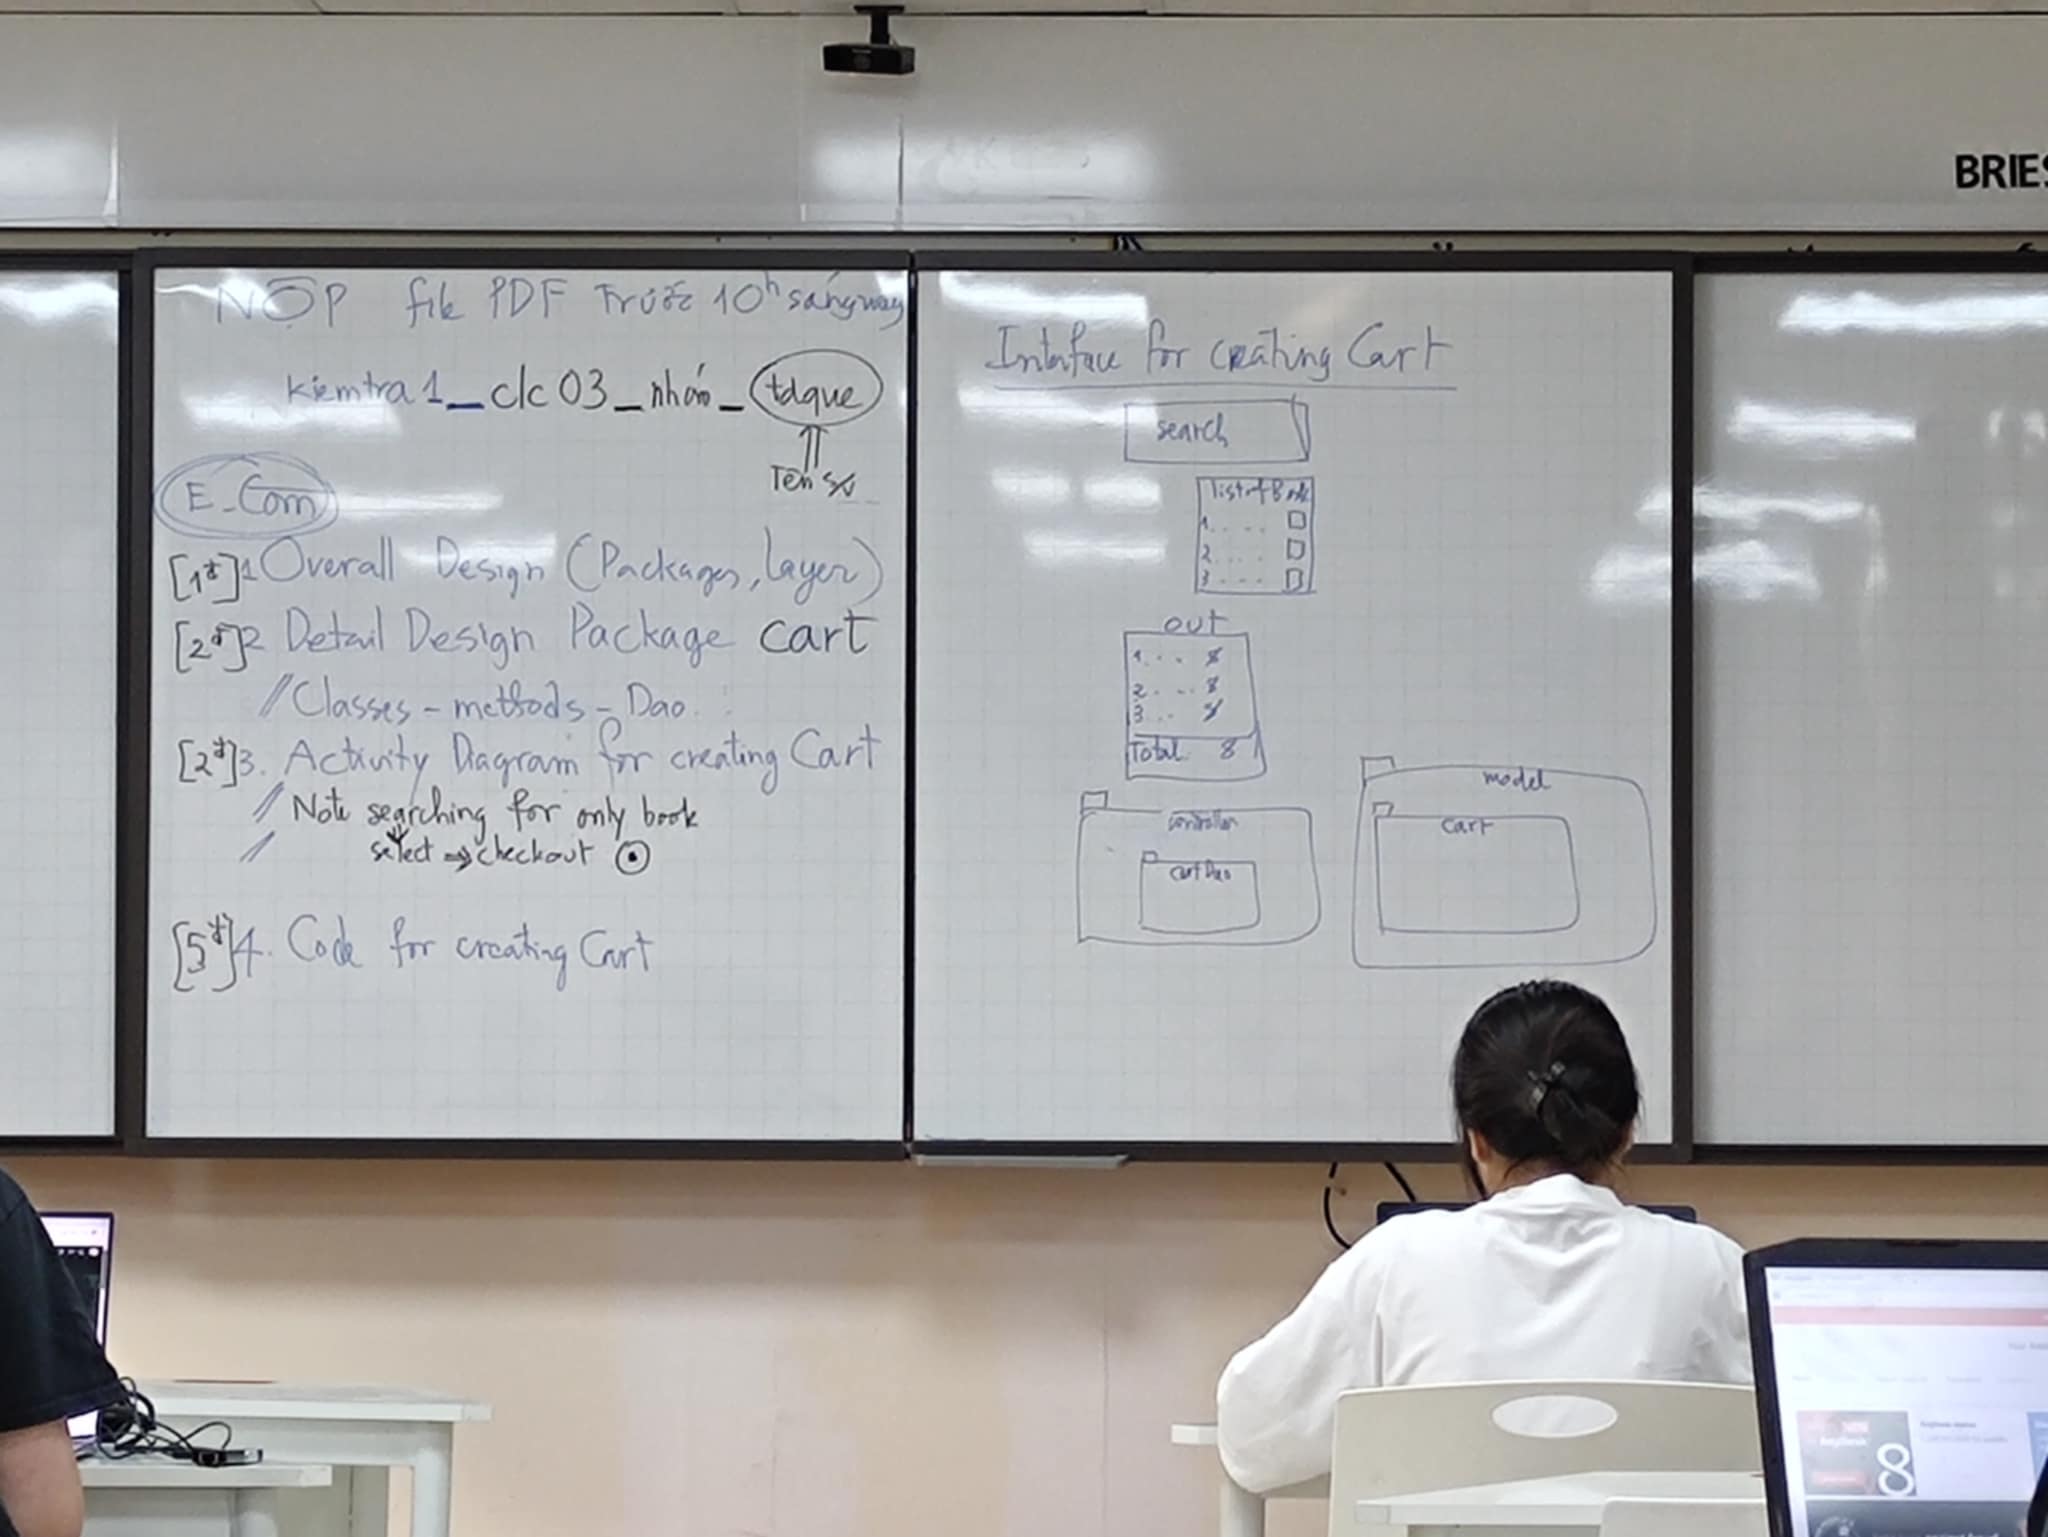 BRIES
NỘP file PDF Trước 10h sáng nay
kiemtra1_clc03_nhóm_tdque
Tên SV
E_Com
[1đ] 1 Overall Design (Packages, layer)
[2đ] 2 Detail Design Package cart
// Classes - methods - Dao..
[2đ] 3. Activity Diagram for creating Cart
// Note searching for only book
// select ⇒ checkout
[5đ] 4. Code for creating Cart
Interface for creating Cart
search
list of Book
1....
2....
3...
out
1... $
2... $
3... $
Total $
controller
cartDao
model
cart
8